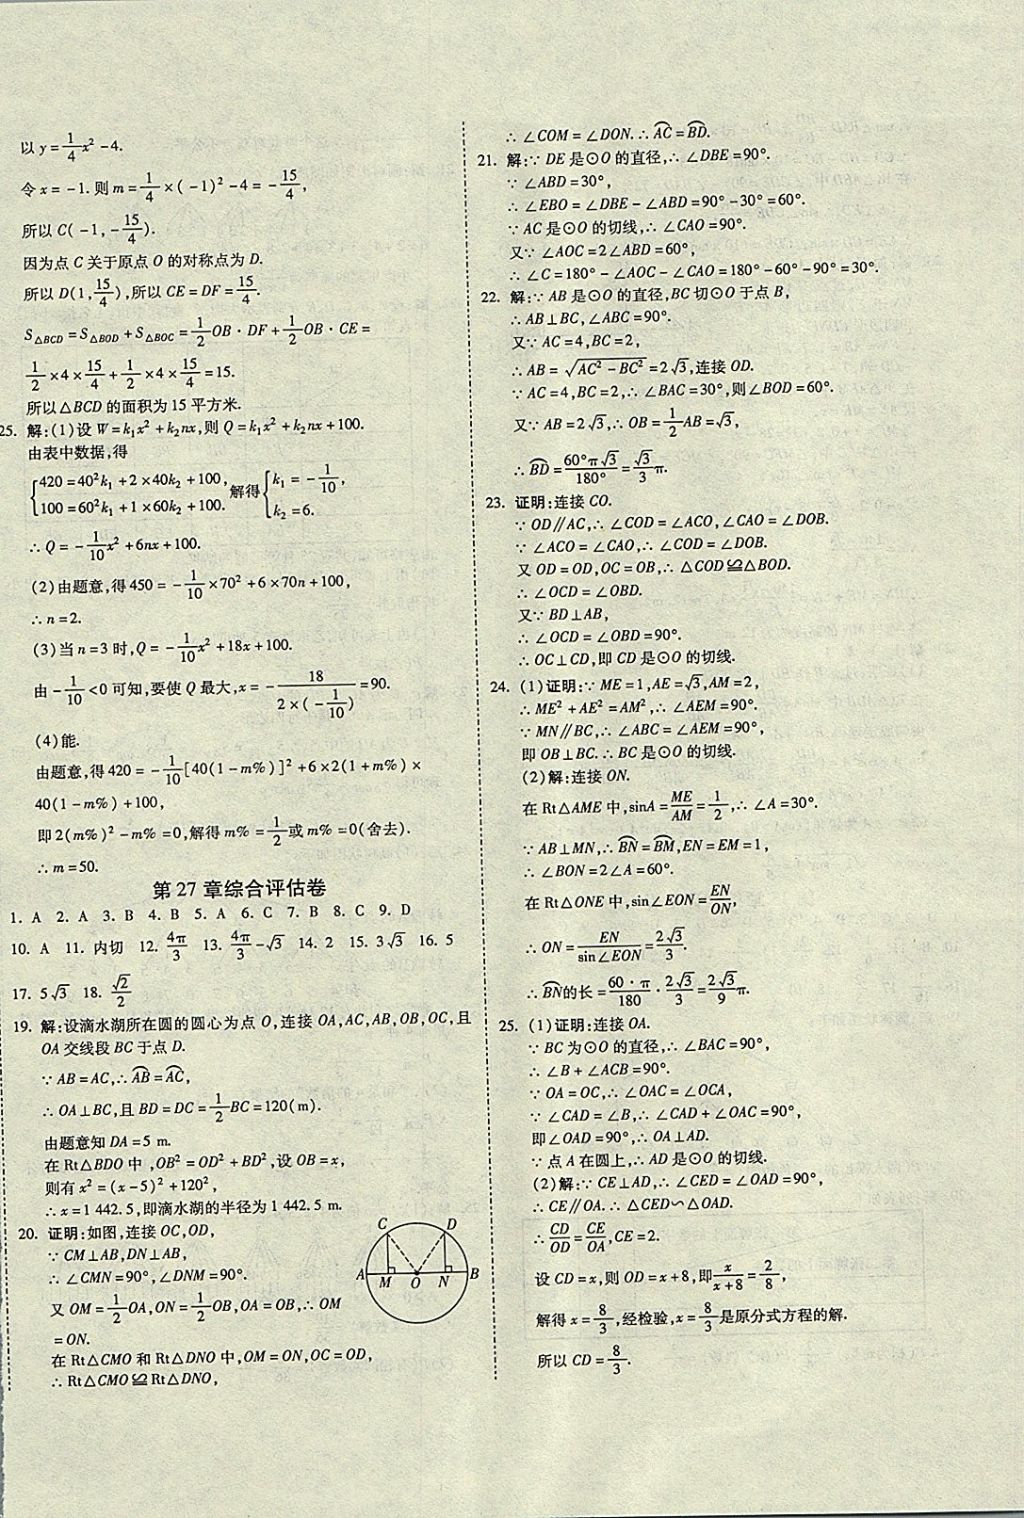 以 y=1/4x²-4.
令 x=-1.则 m=1/4×(-1)²-4=-15/4,
所以 C(-1,-15/4).
因为点 C 关于原点 O 的对称点为 D.
所以 D(1,15/4),所以 CE=DF=15/4.
S△BCD=S△BOD+S△BOC=1/2OB·DF+1/2OB·CE=
1/2×4×15/4+1/2×4×15/4=15.
所以△BCD 的面积为 15 平方米.
25. 解:(1)设 W=k₁x²+k₂nx,则 Q=k₁x²+k₂nx+100.
由表中数据,得
{420=40²k₁+2×40k₂+100, 100=60²k₁+1×60k₂+100. 解得{k₁=-1/10, k₂=6.
∴Q=-1/10x²+6nx+100.
(2)由题意,得 450=-1/10×70²+6×70n+100,
∴n=2.
(3)当 n=3 时,Q=-1/10x²+18x+100.
由-1/10<0 可知,要使 Q 最大,x=-18/(2×(-1/10))=90.
(4)能.
由题意,得 420=-1/10[40(1-m%)]²+6×2(1+m%)×
40(1-m%)+100,
即 2(m%)²-m%=0,解得 m%=1/2或 m%=0(舍去).
∴m=50.
第 27 章综合评估卷
1. A 2. A 3. B 4. B 5. A 6. C 7. B 8. C 9. D
10. A 11. 内切 12. 4π/3 13. 4π/3-√3 14. 2 15. 3√3 16. 5
17. 5√3 18. √2/2
19. 解:设滴水湖所在圆的圆心为点 O,连接 OA,AC,AB,OB,OC,且
OA 交线段 BC 于点 D.
∵AB=AC,∴⌒AB=⌒AC,
∴OA⊥BC,且 BD=DC=1/2BC=120(m).
由题意知 DA=5 m.
在 Rt△BDO 中,OB²=OD²+BD²,设 OB=x,
则有 x²=(x-5)²+120²,
∴x=1 442.5,即滴水湖的半径为 1 442.5 m.
20. 证明:如图,连接 OC,OD,
∵CM⊥AB,DN⊥AB,
∴∠CMN=90°,∠DNM=90°.
又 OM=1/2OA,ON=1/2OB,OA=OB,∴OM
=ON.
在 Rt△CMO 和 Rt△DNO 中,OM=ON,OC=OD,
∴Rt△CMO≌Rt△DNO,
C D
A M O N B
∴∠COM=∠DON.∴⌒AC=⌒BD.
21. 解:∵DE 是⊙O 的直径,∴∠DBE=90°.
∵∠ABD=30°,
∴∠EBO=∠DBE-∠ABD=90°-30°=60°.
∵AC 是⊙O 的切线,∴∠CAO=90°.
又∵∠AOC=2∠ABD=60°,
∴∠C=180°-∠AOC-∠CAO=180°-60°-90°=30°.
22. 解:∵AB 是⊙O 的直径,BC 切⊙O 于点 B,
∴AB⊥BC,∠ABC=90°.
又∵AC=4,BC=2,
∴AB=√(AC²-BC²)=2√3,连接 OD.
∵AC=4,BC=2,∴∠BAC=30°,则∠BOD=60°.
又∵AB=2√3,∴OB=1/2AB=√3,
∴⌒BD=60°π√3/180°=√3/3π.
23. 证明:连接 CO.
∵OD∥AC,∴∠COD=∠ACO,∠CAO=∠DOB.
∵∠ACO=∠CAO,∴∠COD=∠DOB.
又 OD=OD,OC=OB,∴△COD≌△BOD.
∴∠OCD=∠OBD.
又∵BD⊥AB,
∴∠OCD=∠OBD=90°.
∴OC⊥CD,即 CD 是⊙O 的切线.
24. (1)证明:∵ME=1,AE=√3,AM=2,
∴ME²+AE²=AM²,∴∠AEM=90°.
∵MN∥BC,∴∠ABC=∠AEM=90°,
即 OB⊥BC.∴BC 是⊙O 的切线.
(2)解:连接 ON.
在 Rt△AME 中,sinA=ME/AM=1/2,∴∠A=30°.
∵AB⊥MN,∴⌒BN=⌒BM,EN=EM=1,
∴∠BON=2∠A=60°.
在 Rt△ONE 中,sin∠EON=EN/ON,
∴ON=EN/sin∠EON=2√3/3.
∴⌒BN的长=60·π/180·2√3/3=2√3/9π.
25. (1)证明:连接 OA.
∵BC 为⊙O 的直径,∴∠BAC=90°,
∴∠B+∠ACB=90°.
∵OA=OC,∴∠OAC=∠OCA,
∵∠CAD=∠B,∴∠CAD+∠OAC=90°,
即∠OAD=90°,∴OA⊥AD.
∵点 A 在圆上,∴AD 是⊙O 的切线.
(2)解:∵CE⊥AD,∴∠CED=∠OAD=90°,
∴CE∥OA.∴△CED∽△OAD.
∴CD/OD=CE/OA,CE=2.
设 CD=x,则 OD=x+8,即x/(x+8)=2/8,
解得 x=8/3,经检验,x=8/3是原分式方程的解.
所以 CD=8/3.